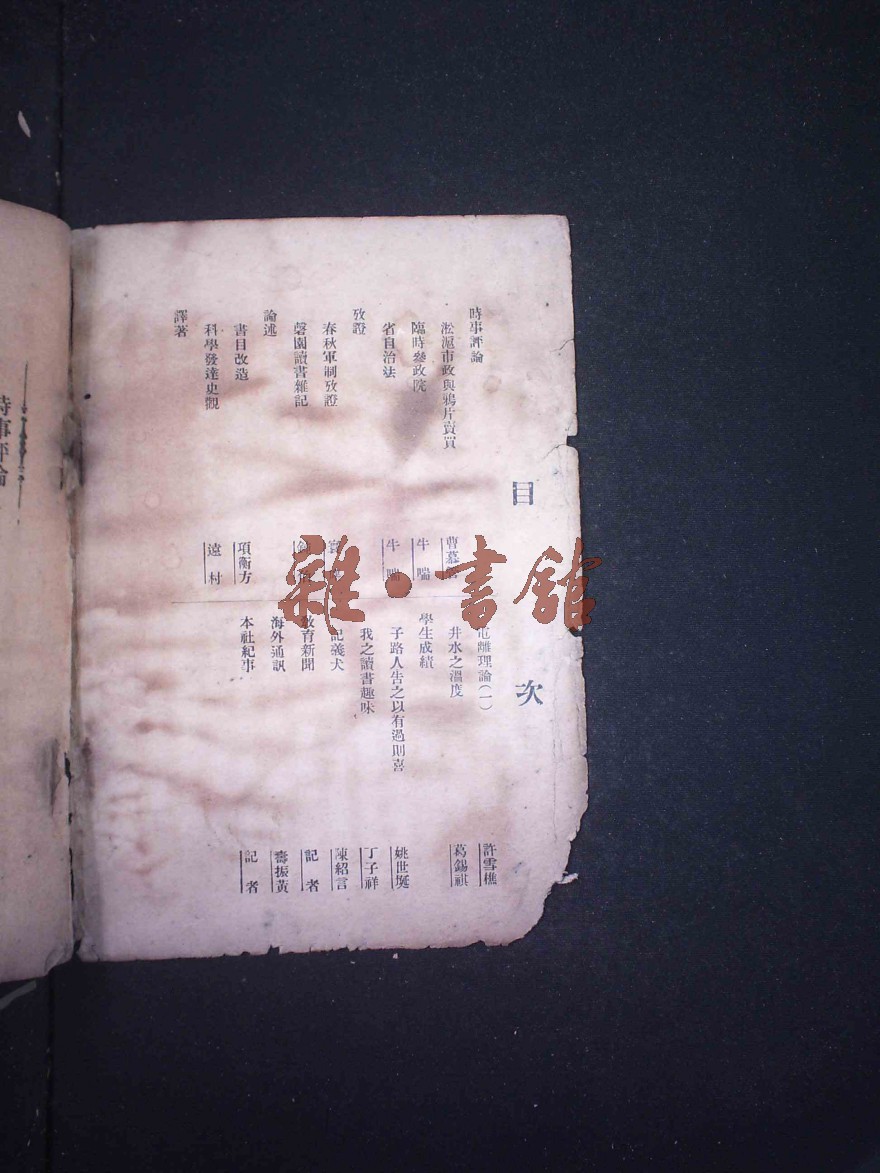 目次
時事評論
淞滬市政與鴉片賣買
曹慕
臨時參政院
牛喘
省自治法
牛喘
攷證
春秋軍制攷證
磬園讀書雜記
論述
書目改造
項衡方
科學發達史觀
遠村
譯著
電離理論(一)
許雪樵
井水之溫度
葛錫祺
學生成績
子路人告之以有過則喜
姚世埏
我之讀書趣味
丁子祥
記義犬
陳紹言
教育新聞
記者
海外通訊
壽振黃
本社紀事
記者
時事評論
雜·書館